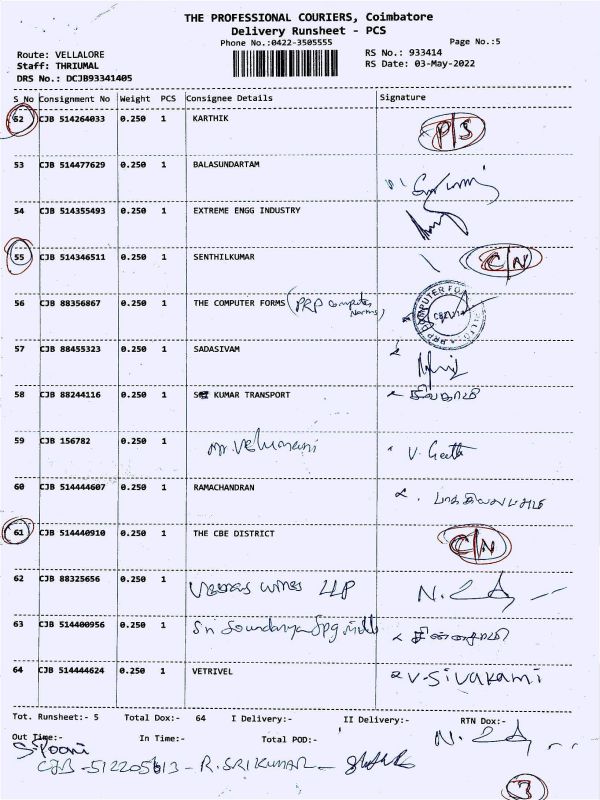 THE PROFESSIONAL COURIERS, Coimbatore
Delivery Runsheet - PCS
Phone No.:0422-3505555 Page No.:5
Route: VELLALORE RS No.: 933414
Staff: THRIUMAL RS Date: 03-May-2022
DRS No.: DCJB93341405
S No Consignment No Weight PCS Consignee Details Signature
52 CJB 514264033 0.250 1 KARTHIK P/S
53 CJB 514477629 0.250 1 BALASUNDARTAM
54 CJB 514355493 0.250 1 EXTREME ENGG INDUSTRY
55 CJB 514346511 0.250 1 SENTHILKUMAR C/N
56 CJB 88356867 0.250 1 THE COMPUTER FORMS (PRP Computer
57 CJB 88455323 0.250 1 SADASIVAM
58 CJB 88244116 0.250 1 KUMAR TRANSPORT
59 CJB 156782 0.250 1 Mr. Velumani V. Geetha
60 CJB 514444607 0.250 1 RAMACHANDRAN
61 CJB 514440910 0.250 1 THE CBE DISTRICT C/N
62 CJB 88325656 0.250 1 wines LLP
63 CJB 514400956 0.250 1 Sri Soundarya Spg Mills
64 CJB 514444624 0.250 1 VETRIVEL V-SIVAKAMI
Tot. Runsheet:- 5 Total Dox:- 64 I Delivery:- II Delivery:- RTN Dox:-
Out Time:- In Time:- Total POD:-
S. Pooni
CJB -512205613 - R. SRIKUMAR -
7